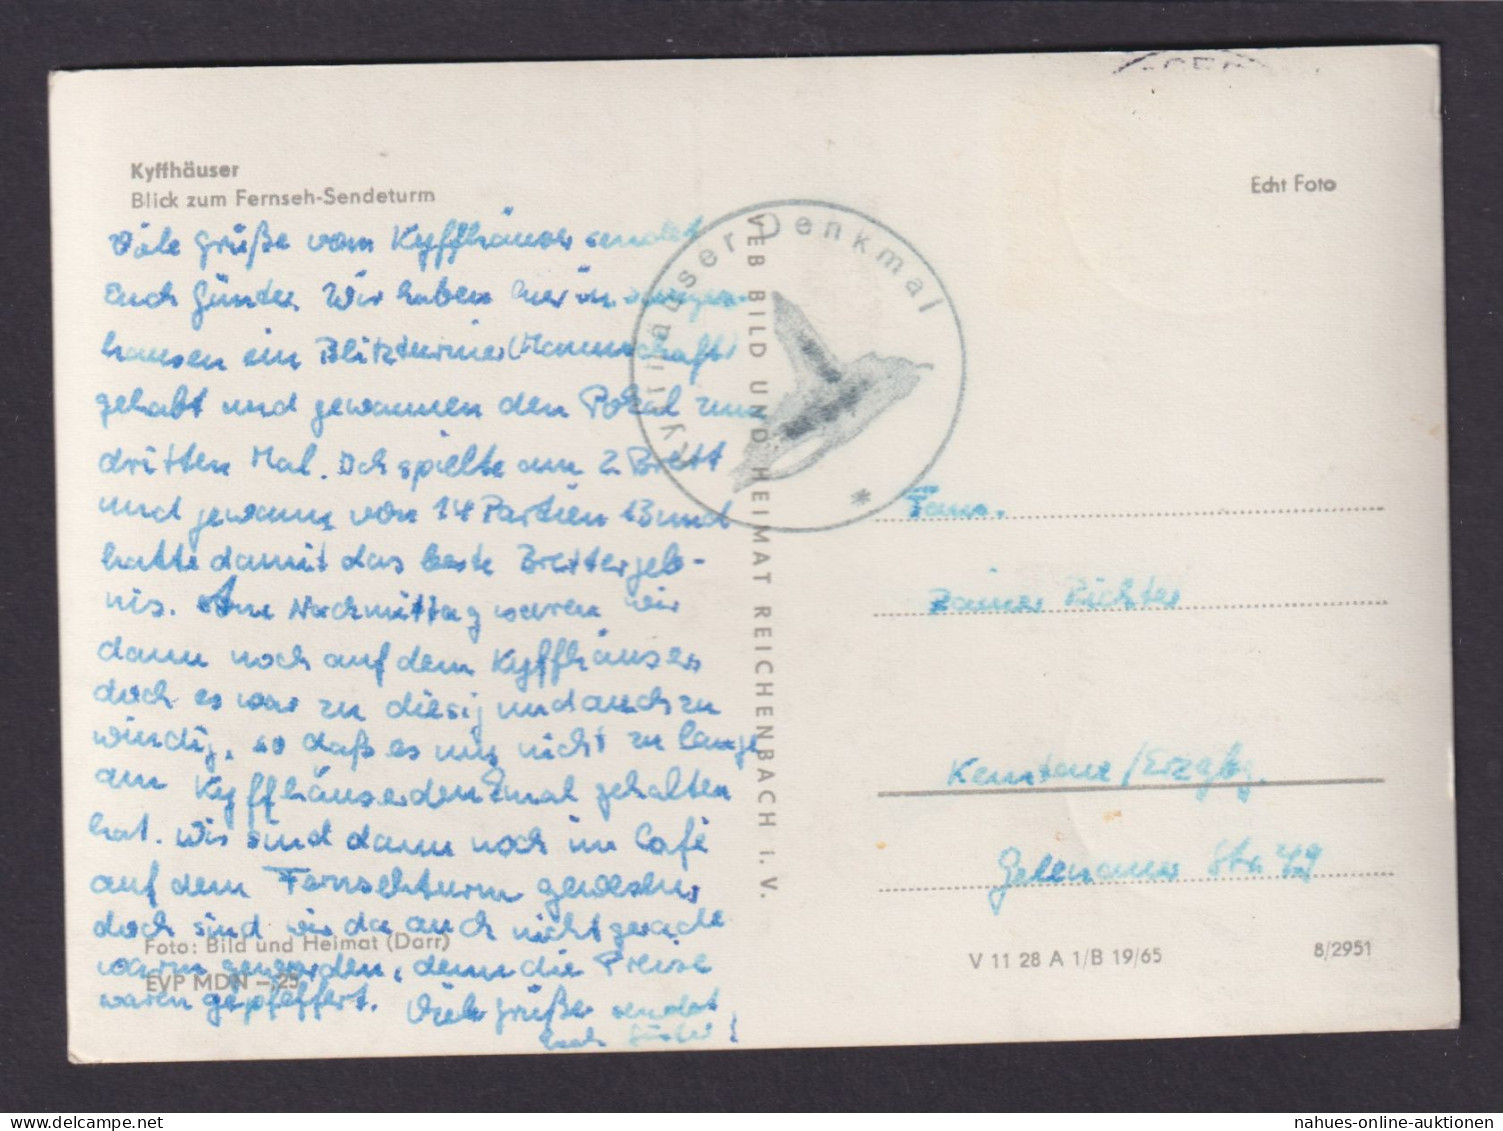 Kyffhäuser
Blick zum Fernseh-Sendeturm
Echt Foto
Viele Grüße vom Kyffhäuser sendet
Euch Günter. Wir haben hier in
hausen ein Blitzturnier (Mannschaft)
gehabt und gewannen den Pokal zum
dritten Mal. Ich spielte am 2. Brett
und gewann von 14 Partien 13 und
hatte damit das beste Brettergeb-
nis. Am Nachmittag waren wir
dann noch auf dem Kyffhäuser
doch es war zu diesig und auch zu
windig, so daß es uns nicht zu lange
am Kyffhäuserdenkmal gehalten
hat. Wir sind dann noch im Café
auf dem Fernsehturm gewesen,
doch sind wir da auch nicht gerade
warm geworden, denn die Preise
waren gepfeffert. Viele Grüße sendet
Euch Günter!
Foto: Bild und Heimat (Darr)
EVP MDN -,25
VEB BILD UND HEIMAT REICHENBACH i. V.
Kyffhäuser Denkmal *
Fam.
Rainer Richter
/Erzgbg.
Gelenauer Str. 49
V 11 28 A 1/B 19/65
8/2951
nahues-online-auktionen